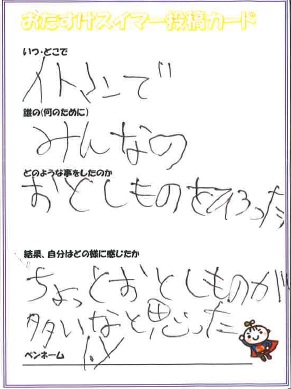 おたすけスイマー投稿カード
いつ・どこで
イトマンで
誰の(何のために)
みんなの
どのような事をしたのか
おとしものをひろった
結果、自分はどの様に感じたか
ちょっとおとしものが
多いなと思った
ペンネーム